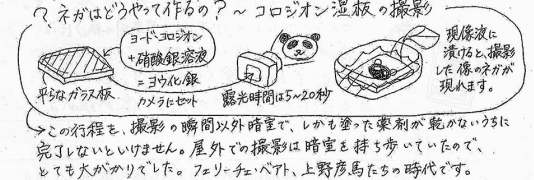 ？ネガはどうやって作るの？～コロジオン湿板の撮影
ヨードコロジオン
+硝酸銀溶液
=ヨウ化銀
平らなガラス板
カメラにセット
露光時間は5~20秒
現像液に
漬けると、撮影
した像のネガが
現れます。
→この行程を、撮影の瞬間以外暗室で、しかも塗った薬剤が乾かないうちに
完了しないといけません。屋外での撮影は暗室を持ち歩いていたので、
とても大がかりでした。フェリーチェ・ベアト、上野彦馬たちの時代です。